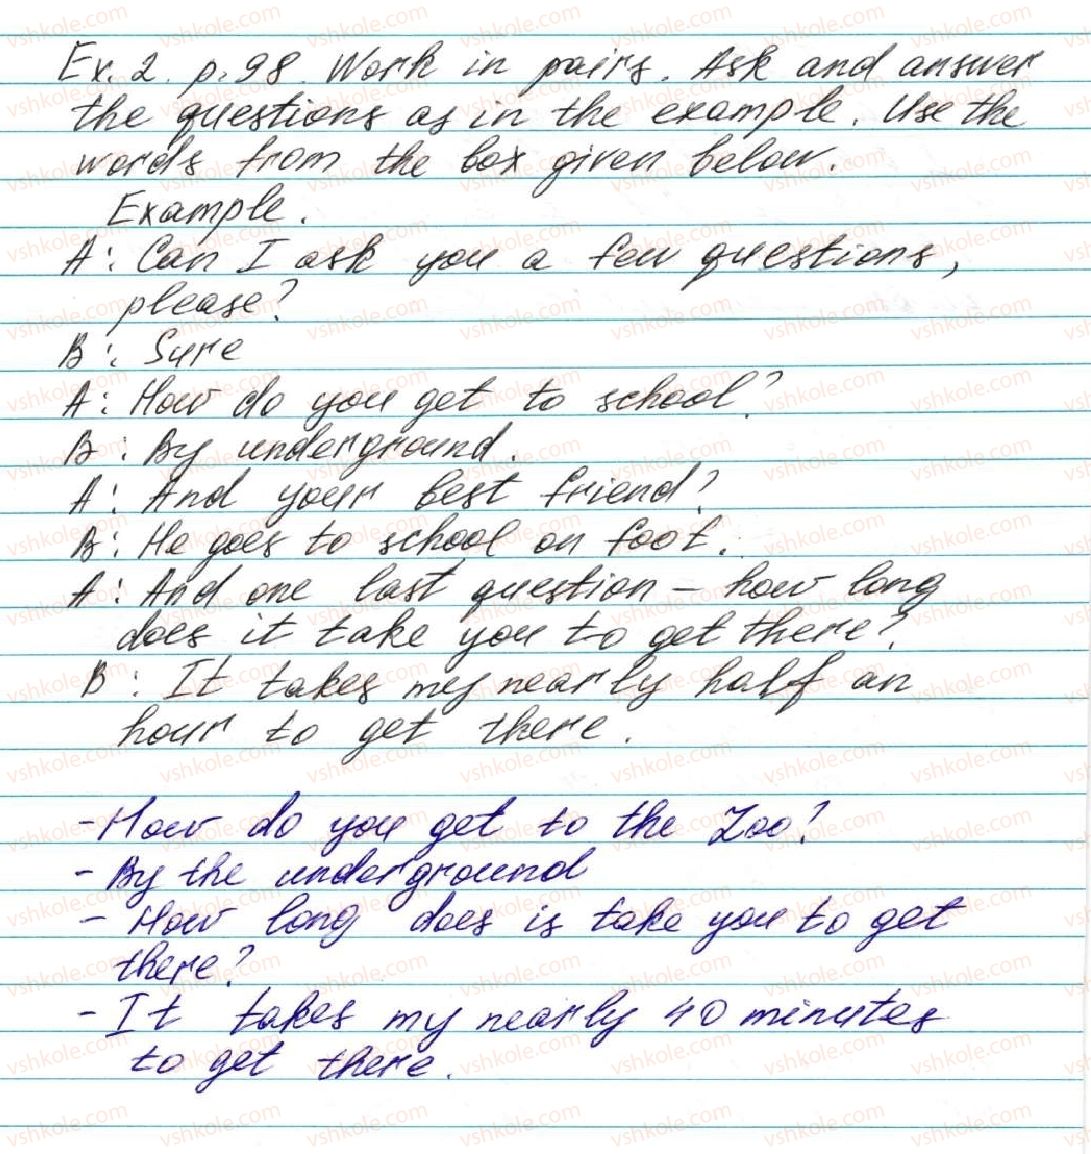 Ex. 2. p. 98. Work in pairs. Ask and answer
the questions as in the example. Use the
words from the box given below.
Example.
A: Can I ask you a few questions,
please?
B: Sure
A: How do you get to school?
B: By underground.
A: And your best friend?
B: He goes to school on foot.
A: And one last question – how long
does it take you to get there?
B: It takes my nearly half an
hour to get there.
- How do you get to the Zoo?
- By the underground
- How long does is take you to get
there?
- It takes my nearly 40 minutes
to get there.